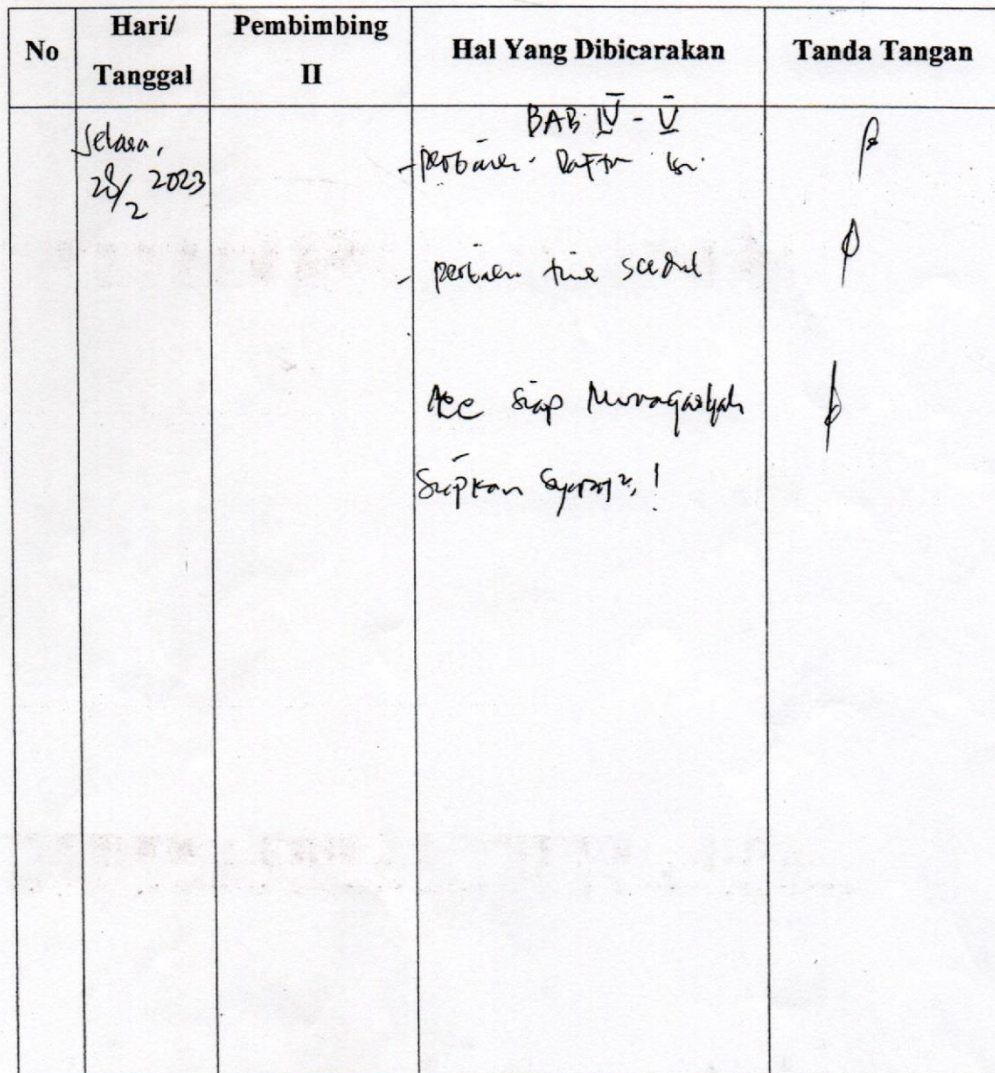 No
Hari/
Tanggal
Pembimbing
II
Hal Yang Dibicarakan
Tanda Tangan
Selasa,
28/2 2023
BAB IV - V
- perbaiki Daftar Isi
- perbaiki time scedul
Acc siap Munaqasyah
Siapkan Syarat²,!